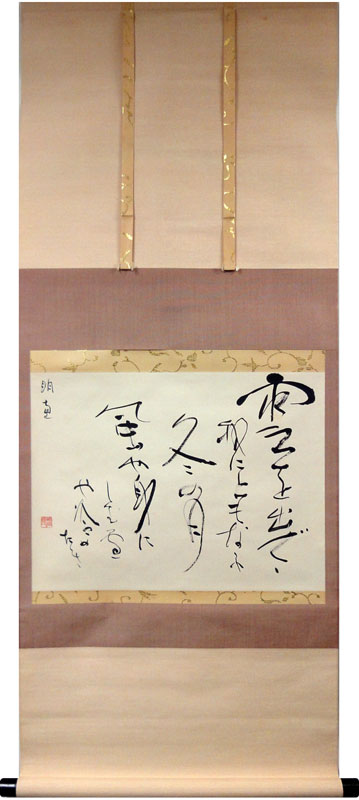 雲を出でゝ
我にともなふ
冬の月
風や身に
しむ雪
や冷め
たき
明恵